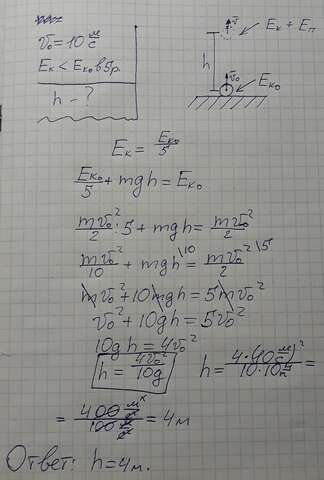 v₀ = 10 м/с
Eк < Eк₀ в 5 р.
h - ?
v
Eк + Eп
h
v₀
Eк₀
Eк = Eк₀/5
Eк₀/5 + mgh = Eк₀
mv₀²/2 : 5 + mgh = mv₀²/2
mv₀²/10 + mgh\10 = mv₀²/2 \5
mv₀² + 10mgh = 5mv₀²
v₀² + 10gh = 5v₀²
10gh = 4v₀²
h = 4v₀²/10g
h = 4·(10 м/с)²/10·10 м/с² =
= 400 м²/с²/100 м/с² = 4 м
Ответ: h = 4 м.